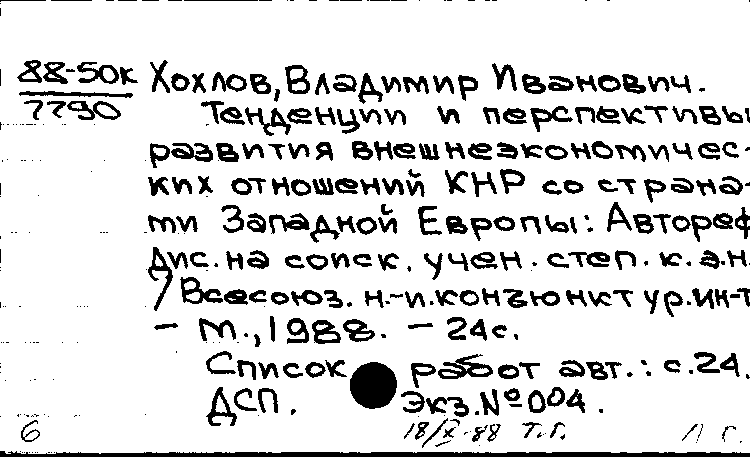 88-50к Хохлов, Владимир Иванович.
7790 Тенденции и перспективы
развития внешнеэкономичес-
ких отношений КНР со страна-
ми Западной Европы: Автореф
Дис. на соиск. учен. степ. к.э.н.
/ Всесоюз. н.-и. конъюнктур. ин-т
– М., 1988. – 24с.
Список работ авт.: с.24.
ДСП. Экз.№004.
6 18/X-88 Т.Г. Л Г.